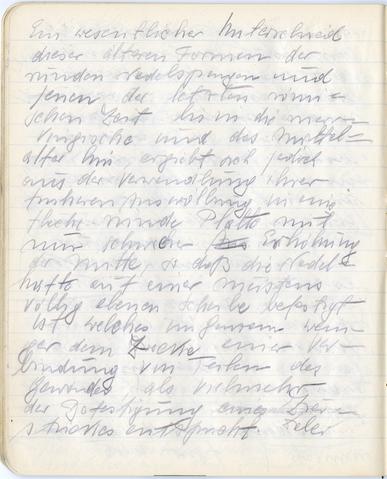 Ein wesentlicher Unterschied
dieser älteren Formen der
runden Nadelspangen und
jenen der letzten römi-
schen Zeit bis in die mero-
vingische und das Mittel=
alter hin ergiebt sich jedoch
aus der Verwandlung ihrer
früheren Auswölbung in eine
flache runde Platte mit
nur schwacher Erhöhung
der Mitte, so daß die Nadel=
hafte auf einer meistens
völlig ebenen Scheibe befestigt
ist welches ungemein weni-
ger dem Zwecke einer Ver-
bindung von Teilen des
Gewandes als vielmehr
der Befestigung eines Zier-
stückes entspricht.